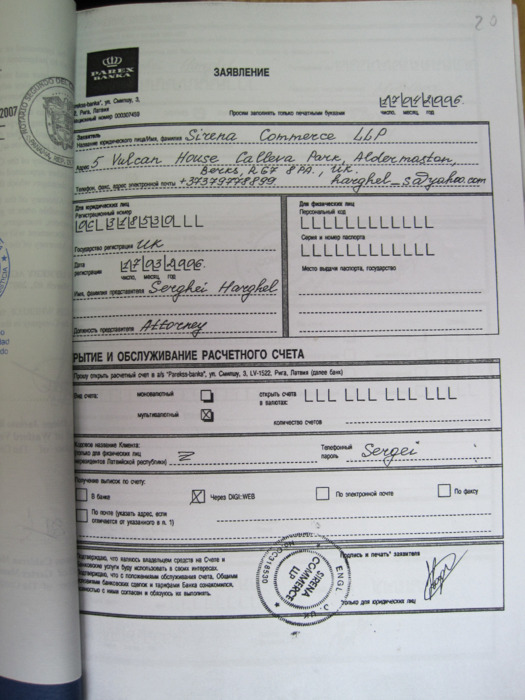 20
2007
PAREX
BANKA
ЗАЯВЛЕНИЕ
"Parekss-banka", ул. Смилшу, 3,
Рига, Латвия
номер 000307459
Просим заполнять только печатными буквами
число, месяц, год
Заявитель
Название юридического лица/Имя, фамилия Sirena Commerce LLP
Адрес 5 Vulcan House Calleva Park, Aldermaston,
Berks, RG7 8PA., UK.
Телефон, факс, адрес электронной почты +37379778899 harghel_s@yahoo.com
Для юридических лиц
Регистрационный номер
Государство регистрации UK
Дата
регистрации
число, месяц, год
Имя, фамилия представителя Serghei Harghel
Должность представителя Attorney
Для физических лиц
Персональный код
Серия и номер паспорта
Место выдачи паспорта, государство
РЫТИЕ И ОБСЛУЖИВАНИЕ РАСЧЕТНОГО СЧЕТА
Прошу открыть расчетный счет в а/s "Parekss-banka", ул. Смилшу, 3, LV-1522, Рига, Латвия (далее банк)
Вид счета: моновалютный
открыть счета
в валютах:
мультивалютный
количество счетов
Кодовое название Клиента:
(только для физических лиц
нерезидентов Латвийской республики) Z
Телефонный
пароль Sergei
Получение выписок по счету:
В банке
Через DIGI::WEB
По электронной почте
По факсу
По почте (указать адрес, если
отличается от указанного в п. 1)
Подтверждаю, что являюсь владельцем средств на Счете и
банковские услуги буду использовать в своих интересах.
Подтверждаю, что с положениями обслуживания счета, Общими
условиями банковских сделок и тарифами Банка ознакомился,
полностью с ними согласен и обязуюсь их выполнять.
SIRENA
COMMERCE
LLP
Подпись и печать* заявителя
*только для юридических лиц